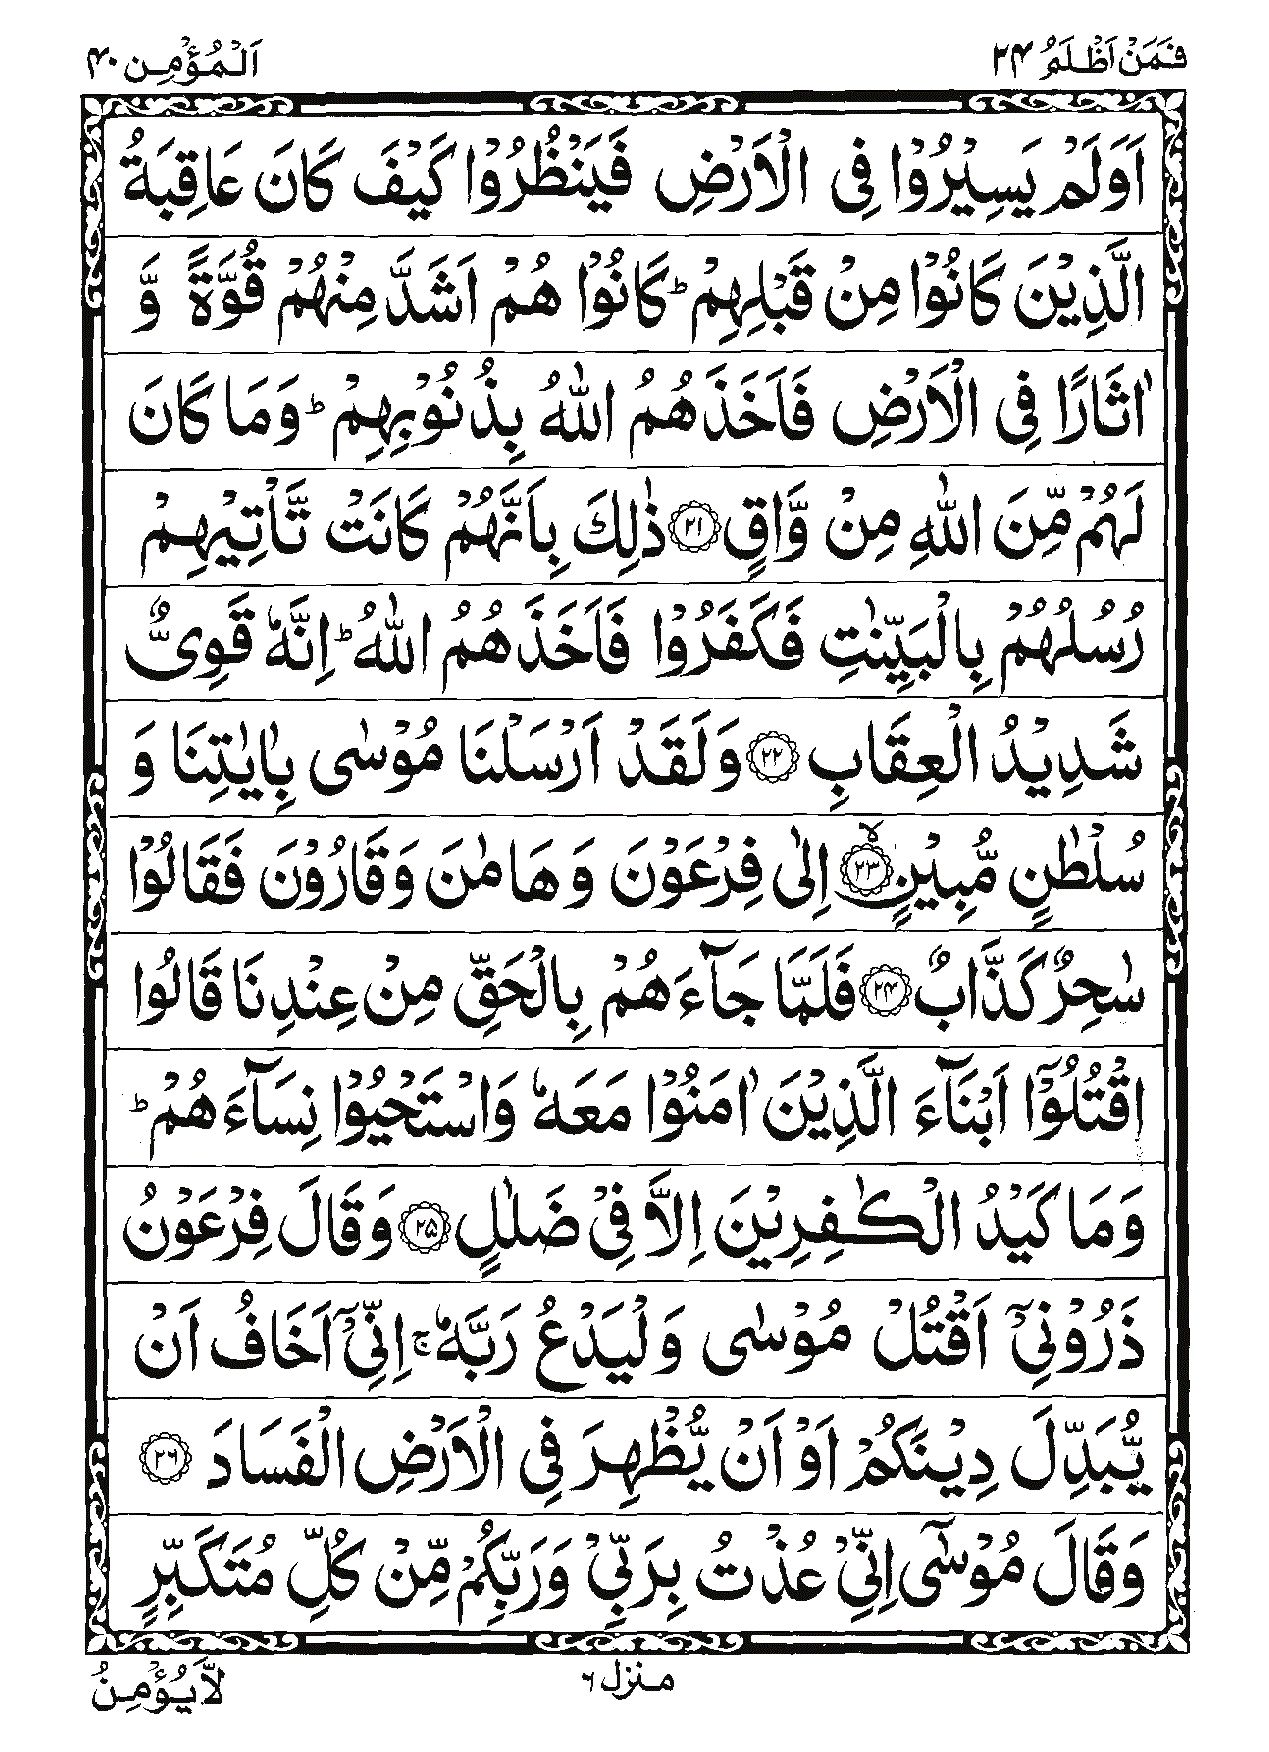 فَمَنْ اَظْلَمُ ۲۴ اَلْمُؤْمِن ۴۰
اَوَلَمْ يَسِيْرُوْا فِى الْاَرْضِ فَيَنْظُرُوْا كَيْفَ كَانَ عَاقِبَةُ
الَّذِيْنَ كَانُوْا مِنْ قَبْلِهِمْ ؕ كَانُوْا هُمْ اَشَدَّ مِنْهُمْ قُوَّةً وَّ
اٰثَارًا فِى الْاَرْضِ فَاَخَذَهُمُ اللّٰهُ بِذُنُوْبِهِمْ ؕ وَمَا كَانَ
لَهُمْ مِّنَ اللّٰهِ مِنْ وَّاقٍ ۲۱ ذٰلِكَ بِاَنَّهُمْ كَانَتْ تَّاْتِيْهِمْ
رُسُلُهُمْ بِالْبَيِّنٰتِ فَكَفَرُوْا فَاَخَذَهُمُ اللّٰهُ ؕ اِنَّهٗ قَوِىٌّ
شَدِيْدُ الْعِقَابِ ۲۲ وَلَقَدْ اَرْسَلْنَا مُوْسٰى بِاٰيٰتِنَا وَ
سُلْطٰنٍ مُّبِيْنٍ ۙ ۲۳ اِلٰى فِرْعَوْنَ وَ هَامٰنَ وَقَارُوْنَ فَقَالُوْا
سٰحِرٌ كَذَّابٌ ۲۴ فَلَمَّا جَآءَهُمْ بِالْحَقِّ مِنْ عِنْدِنَا قَالُوا
اقْتُلُوْٓا اَبْنَآءَ الَّذِيْنَ اٰمَنُوْا مَعَهٗ وَاسْتَحْيُوْا نِسَآءَهُمْ ؕ
وَمَا كَيْدُ الْكٰفِرِيْنَ اِلَّا فِىْ ضَلٰلٍ ۲۵ وَقَالَ فِرْعَوْنُ
ذَرُوْنِىْٓ اَقْتُلْ مُوْسٰى وَلْيَدْعُ رَبَّهٗ ۚ اِنِّىْٓ اَخَافُ اَنْ
يُّبَدِّلَ دِيْنَكُمْ اَوْ اَنْ يُّظْهِرَ فِى الْاَرْضِ الْفَسَادَ ۲۶
وَقَالَ مُوْسٰٓى اِنِّىْ عُذْتُ بِرَبِّىْ وَرَبِّكُمْ مِّنْ كُلِّ مُتَكَبِّرٍ
منزل ۶ لَّا يُؤْمِنُ